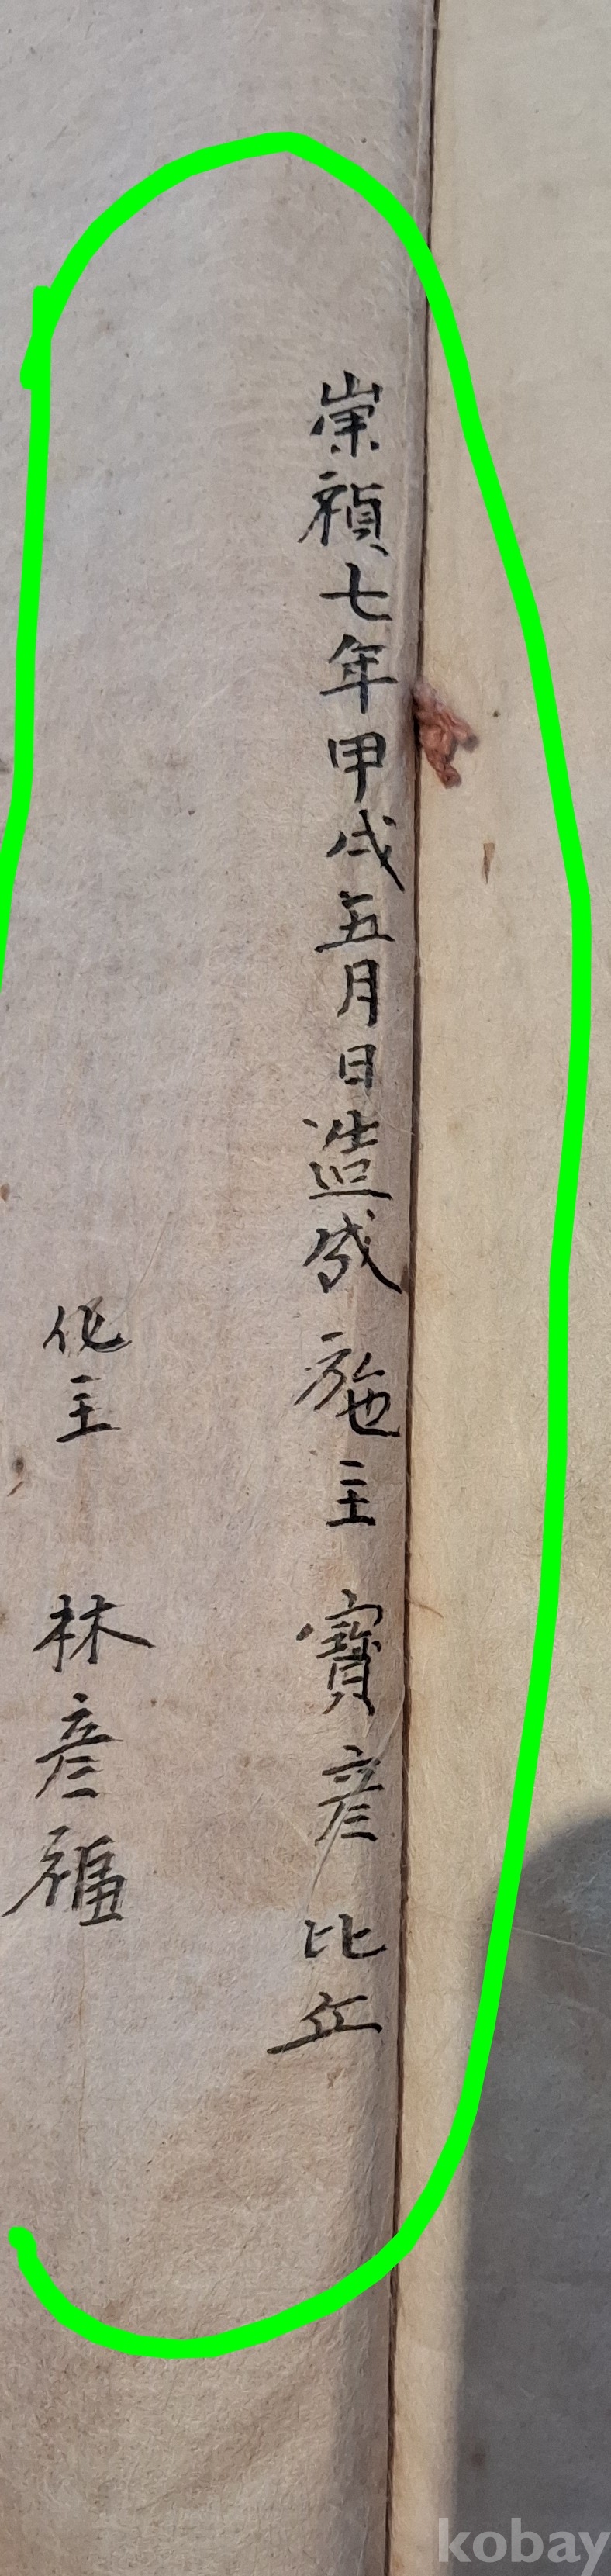 崇禎七年甲戌五月日造成 施主 寶彦比丘
化主 林彦福
kobay